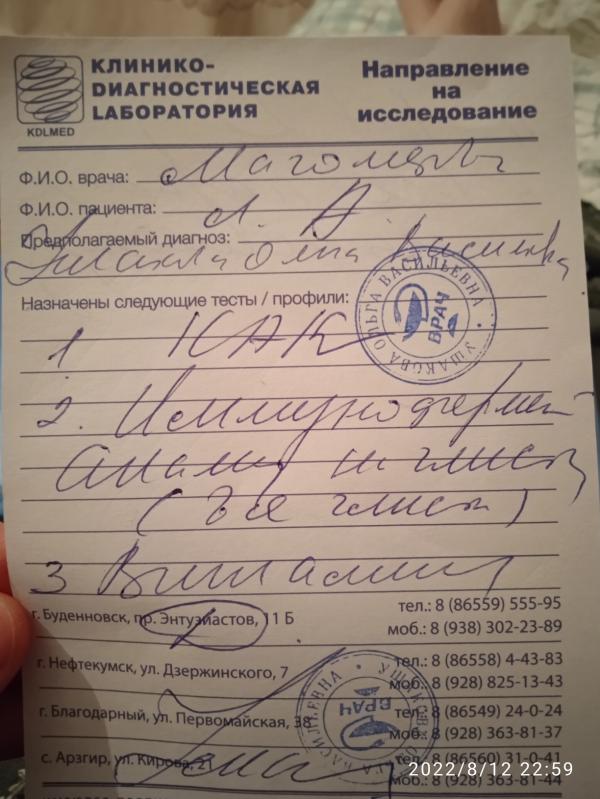 КЛИНИКО-
DИАГНОСТИЧЕСКАЯ
LАБОРАТОРИЯ
KDLMED
Направление
на
исследование
Ф.И.О. врача:
Ф.И.О. пациента: А. А.
Предполагаемый диагноз:
Ольга
Назначены следующие тесты / профили:
УШАКОВА ОЛЬГА ВАСИЛЬЕВНА
ВРАЧ
1 КАК
2. Иммунофермент
анализ на глисты
(все глисты)
3 Витамин
г. Буденновск, пр. Энтузиастов, 11 Б тел.: 8 (86559) 555-95
моб.: 8 (938) 302-23-89
г. Нефтекумск, ул. Дзержинского, 7 тел.: 8 (86558) 4-43-83
моб.: 8 (928) 825-13-43
г. Благодарный, ул. Первомайская, 38 тел.: 8 (86549) 24-0-24
моб.: 8 (928) 363-81-37
с. Арзгир, ул. Кирова, 21 тел.: 8 (86560) 31-0-41
моб.: 8 (928) 363-81-44
ВРАЧ
2022/8/12 22:59